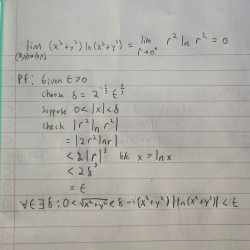 lim (x²+y²) ln(x²+y²) = lim r² ln r² = 0
(x,y)→(0,0) r→0⁺
Pf: Given ε>0
choose δ = 2^(-1/3) ε^(1/3)
Suppose 0<|x|<δ
check |r² ln r²|
= |2r² ln r|
< 2|r|³ b/c x > ln x
< 2δ³
= ε
∀ε ∃δ : 0 < √(x²+y²) < δ → (x²+y²)|ln(x²+y²)| < ε